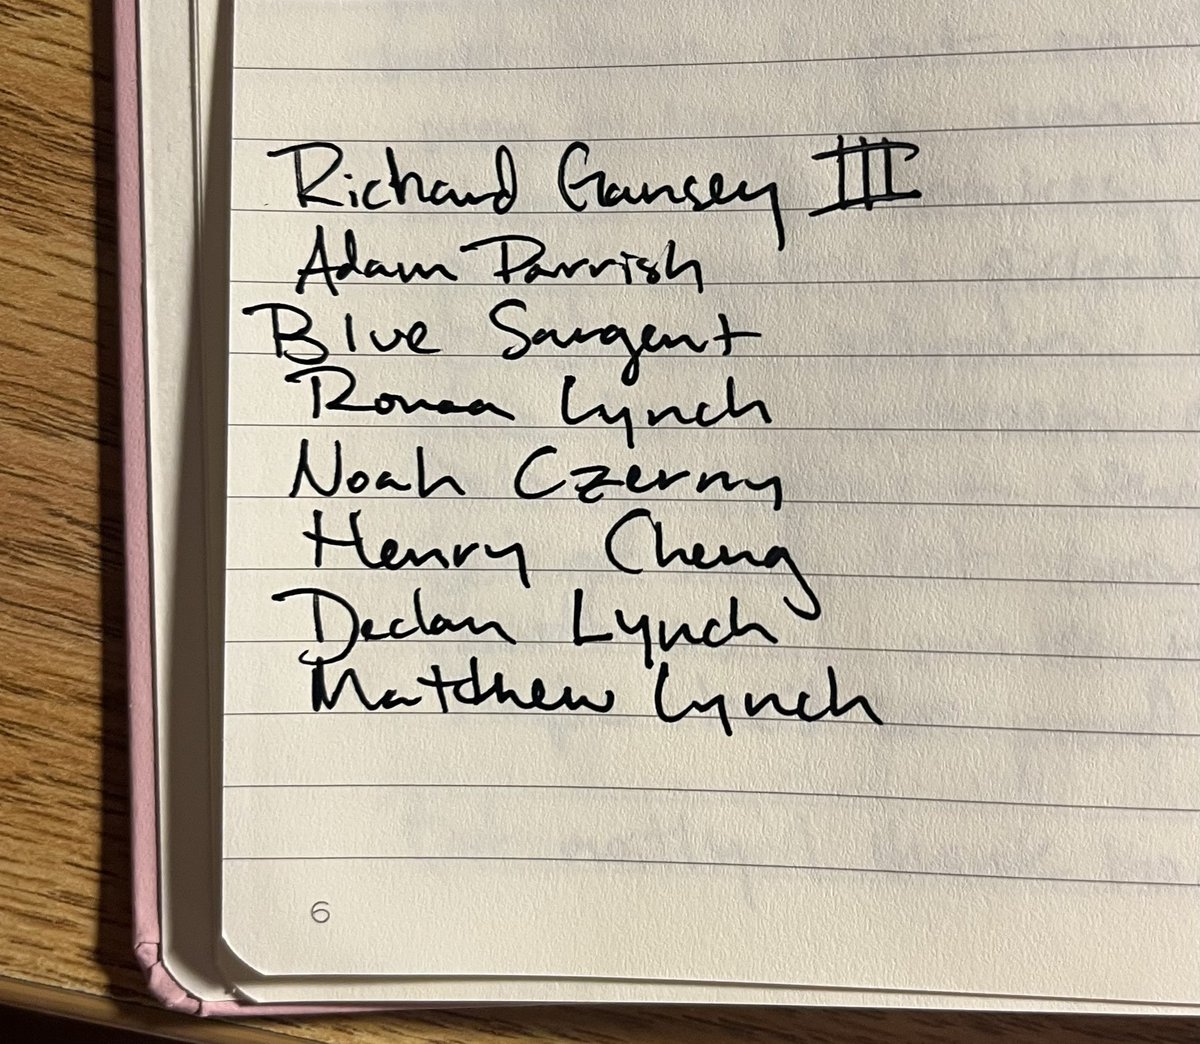 Richard Gansey III
Adam Parrish
Blue Sargent
Ronan Lynch
Noah Czerny
Henry Cheng
Declan Lynch
Matthew Lynch
6